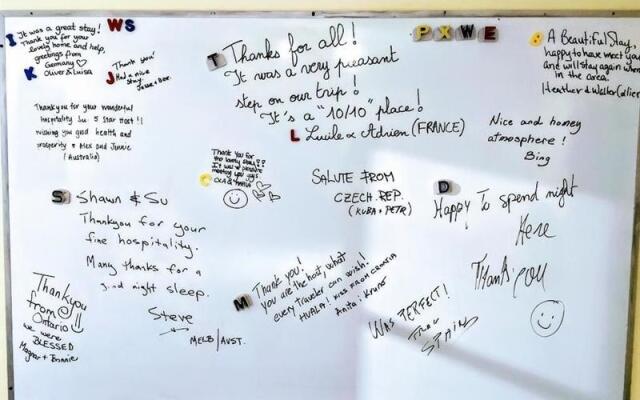 I
It was a great stay!
Thank you for your
lovely home and help,
greetings from
Germany
Oliver & Luisa
K
WS
J
Thank you!
Had a nice
stay.
T
Thanks for all!
It was a very peasant
step on our trip!
It's a "10/10" place!
L
Lucile & Adrien (FRANCE)
PXWE
A Beautiful Stay
happy to have meet you
and will stay again when
in the area.
Thank you for your wonderful
hospitality Su. 5 Star Host !!
wishing you good health and
prosperity
Alex and Junnie
(Australia)
Nice and homey
atmosphere!
Bing
C
Thank you for
the lovely stay??
meeting you guys
SALUTE FROM
CZECH REP.
(KUBA + PETR)
D
Happy To spend night
Here
Thank you
S
Shawn & Su
Thankyou for your
fine hospitality.
Many thanks for a
good night sleep.
Steve
MELB/AUST.
Thankyou
from
Ontario
we were
BLESSED
M
Thank you!
you are the host, what
every traveler can wish!
HVALA! KISS FROM CROATIA
WAS PERFECT!
FROM
SPAIN